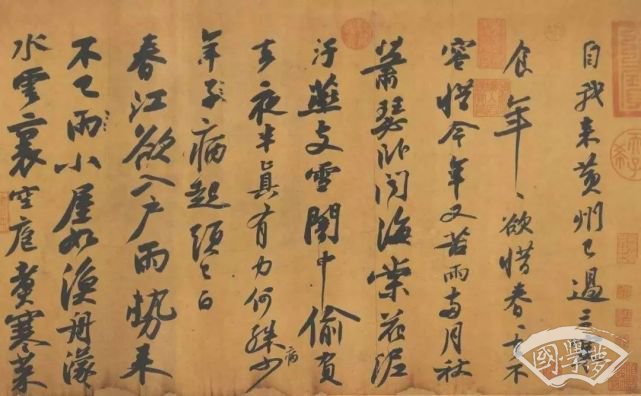 自我來黃州已過三寒
食年〻欲惜春〻去不
容惜今年又苦雨兩月秋
蕭瑟卧聞海棠花泥
汙燕支雪闇中偷負
去夜半真有力何殊少
病
年子病起頭已白
春江欲入户雨勢來
不已雨小屋如漁舟濛〻
水雲裏空庖煮寒菜
國學夢